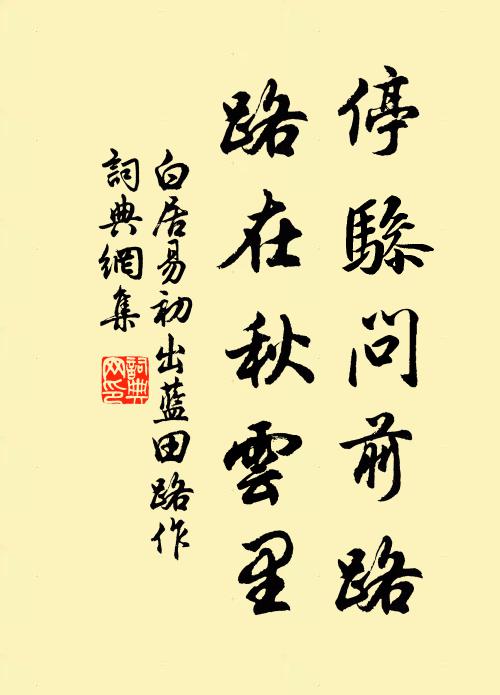 停驂問前路
路在秋雲里
白居易初出藍田路作
詞典網集
詞典网印